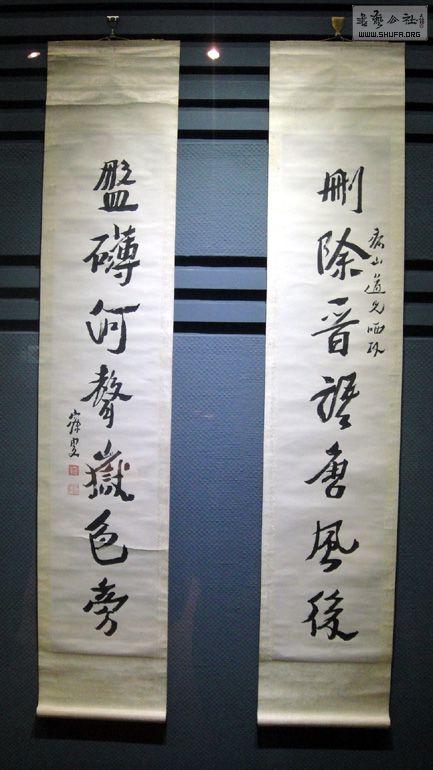 書藝公社
WWW.SHUFA.ORG
刪除晉語唐風後
山道兄哂
盤礴河聲嶽色旁
寐叟